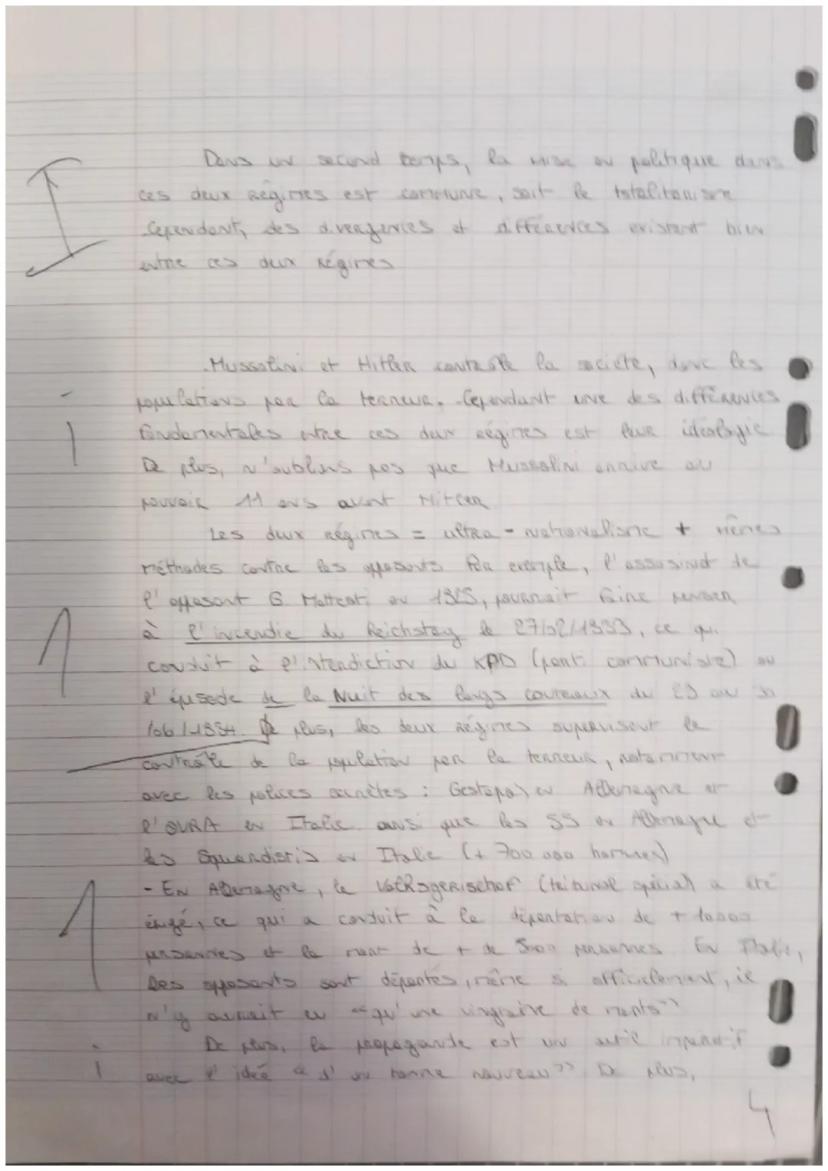 Dans un second temps, la mise au politique dans
ces deux régimes est commune, soit le totalitarisme
Cependant, des divergences et différences existent bien
entre ces deux régimes
Mussolini et Hitler contrôle la société, donc les
populations par la terreur. Cependant une des différences
fondamentales entre ces deux régimes est leur idéologie
De plus, n'oublions pas que Mussolini arrive au
pouvoir 11 ans avant Hitler
Les deux régimes = ultra-nationalisme + mêmes
méthodes contre les opposants Par exemple, l'assasinat de
l'opposant G Matteoti en pourrait faire penser
à l'incendie du Reichstag le 27/02/1933, ce qui
conduit à l'interdiction du KPD (parti communiste) ou
l'épisode de la Nuit des longs couteaux du 29 au 30
/06/1934. De plus, les deux régimes supervisent le
contrôle de la population par la terreur, notamment
avec les polices secrètes : Gestapo, en Allemagne et
l'OVRA en Italie ainsi que les SS en Allemagne et
les Squadistis en Italie (+ 700 000 hommes)
- En Allemagne, le (tribunal spécial) a été
érigé, ce qui a conduit à la déportation de + 10000
personnes et la mort de + de 5000 personnes. En Italie,
Des opposants sont déportés, même si officielement, il
n'y aurait eu "qu'une vingtaine de morts"
De plus, la propagande est un outil impératif
avec l'idée "d'un homme nouveau" De plus,
4